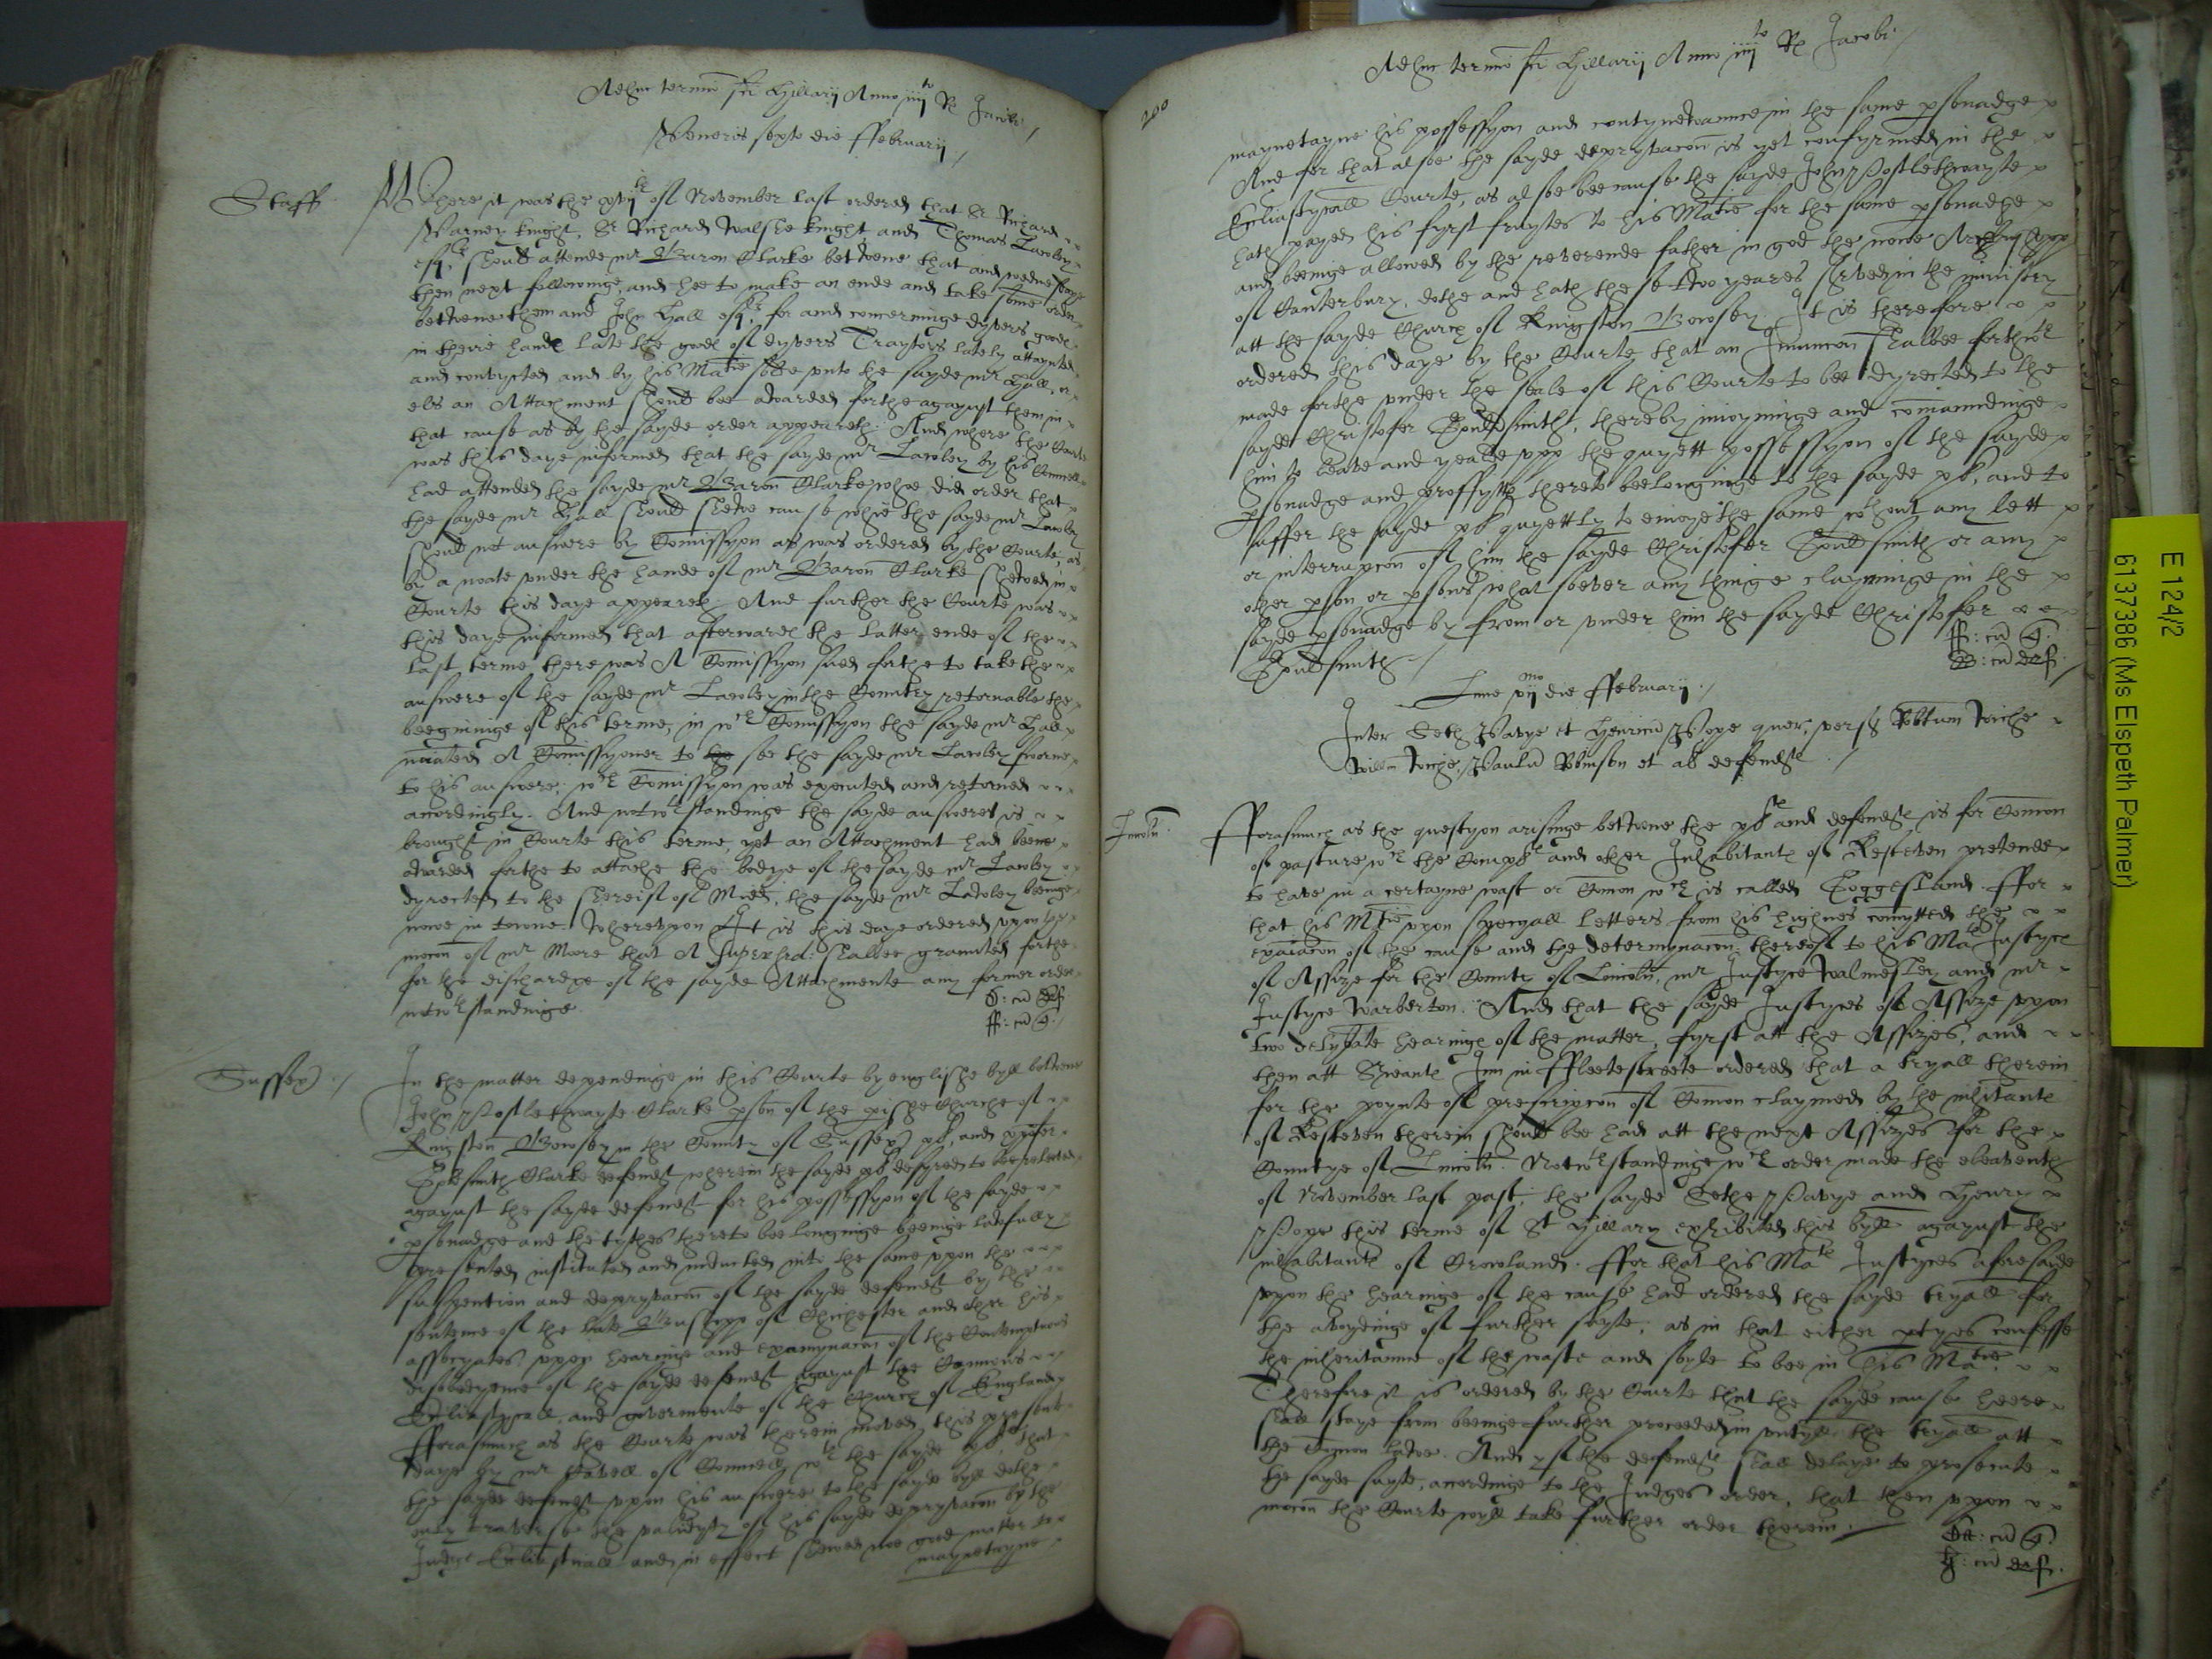 Adhuc termino sci Hillarij Anno iiijto Rs Jacobi
Veneris sexto die ffebruarij
Staff
Where it was the xviijth of November last ordered that Sr Richard
Varney knight, Sr Richard Walshe knight and Thomas Lawley
esqr should attende mr Baron Clarke betwene that and wednesdaye
then next followinge, and hee to make an ende and take some order
betwene them and John Hall esqr for and concerninge dyvers goods
in theire hands late the goods of dyvers Traytors lately attaynted
and convycted and by his Matie solde unto the sayde mr Hall, or
els an Attachment should bee awarded forthe agaynst them in
that cause as by the sayde order appeareth. And where the Courte
was this daye informed that the sayde mr Lawley by his Counsell
had attended the sayde mr Baron Clarke whoe did order that
the sayde mr Hall should shewe cause whie the sayde mr Lawley
should not answere by Comissyon as was ordered by the Courte, as
by a noate under the hande of mr Baron Clarke shewed in
Courte this daye appeareth. And further the Courte was
this daye informed that afterwards the latter ende of the
last terme there was A Comissyon sued forthe to take the
answere of the sayde mr Lawley in the Countrey retornable the
beeginninge of this terme, in wch Comissyon the sayde mr Hall
noiated A Comissyoner to see the sayde mr Lawley sworne
to his answere. wch Comissyon was executed and retorned
acordingly. And notwthstandinge the sayde answere is
brought in Courte this terme, yet an Attachment had beene
awarded forthe to attache the bodye of the sayde mr Lawley
dyrected to the shereif of Midd, the sayde mr Lawley beeinge
nowe in towne. Whereupon It is this daye ordered upon the
mocon of mr More that A Supersed: shalbee graunted forthe
for the dischardge of the sayde Attachmente any former order
notwthstandinge.
ff: cu q.
Sussex
In the matter dependinge in this Courte by englishe byll betwene
John Postlethwayte Clarke pson of the pishe Churche of
Kingston Bowsey in the County of Sussex pl, and xpofer
Gouldsmith Clarke defendt wherein the sayde pl desyred to bee releeved
agaynst the sayde defendt for his possessyon of the sayde
psonadge and the tythes thereto beelonginge beeinge lawfully
presented instituted and inducted into the same upon the
suspention and depryvacon of the sayde defendt by the
sentence of the late Busshopp of Chichester and other his
assocyates upon hearinge and examynacon of the Contemptuous
disobedyence of the sayde defendt agaynst the Cannons
Eccliastycall, and govermente of the Church of England
fforasmuch as the Courte was therein moved this presente
daye by mr Havell of Councell wth the sayde pl that
the sayde defendt upon his answere to the sayde byll dothe
only traverse the validyty of his sayde depryvacon by the
Judge Eccliasticall and in effect shewed noe good matter to
maynetayne
200
Adhuc termino sci Hillarij Anno iiijto Rs Jacobi
maynetayne his possessyon and contynewannce in the same psonadge
And for that alsoe the sayde depryvacon is yet confyrmed in the
Eccliastycall Courte, as alsoe beecause the sayde John Postlethwayte
hath payed his fyrst fruytes to his Matie for the same psonadge
and beeinge allowed by the reverende father in god the nowe Archbusshopp
of Canterbury, dothe and hath these two yeares served in the ministry
att the sayde Church of Kingston Bowsey. It is therefore
ordered this daye by the Courte that an Iniunccon shalbee forthwth
made forthe under the seale of this Courte to bee dyrected to the
sayde Christofer Gouldsmith, thereby inioyninge and comaundinge
him to leave and yealde upp the quyett possessyon of the sayde
psonadge and proffytts thereto beelonginge to the sayde pl, and to
suffer the sayde pl quyettly to enioye the same wthout any lett
or interrupcon of him the sayde Christofer Gouldsmith or any
other pson or psons whatsoever any thinge claymynge in the
sayde psonadge by from or under him the sayde Christofer
Gouldsmith
ff: cu q.
Lune xijmo die ffebruarij
Inter Seth Pavye et Henricu Pope quer, versus Robtum Wiche
Willm Wiche, Paulu Robinson et al defendts
Lincoln
fforasmuch as the questyon arisinge betwene the pls and defendts is for Comon
of pasture wch the Complts and other Inhabitants of Kesteven pretende
to have in a certayne wast or Comon wch is called Goggesland. ffor
that his Matie upon specyall letters from his highnes comytted the
exaiacon of the cause and the determynacon thereof to his Mats Justyces
of Assize for the County of Lincoln, mr Justyce Walmesley and mr
Justyce Warberton. And that the sayde Justyces of Assize upon
two delyberate hearings of the matter, fyrst att the Assizes, and
then att Srieants Inn in ffleetestreete ordered that a tryall therein
for the poynte of prescripcon of Comon claymed by the inhitants
of Kesteven therein should bee had att the next Assizes for the
Countye of Lincoln. Notwthstandinge wch order made the eleaventh
of November last past, the sayde Sethe Pavye and Henry
Pope this terme of St Hillary exhibited this byll agaynst the
inhabitants of Crowland. ffor that his Mats Justyces aforesayde
upon the hearinge of the cause had ordered the sayde tryall for
the avoydinge of further suyte, as in that either ptyes confesse
the inheritannce of the waste and soyle to bee in his Matie.
Therefore it is ordered by the Courte that the sayde cause heere
shall staye from beeinge further proceeded in untyll the tryall att
the Comon lawe. And yf the defendts shall delaye to prosecute
the sayde suyte, acordinge to the Judges order, that then upon
mocon the Courte wyll take further order therein.
E 124/2
6137386 (Ms Elspeth Palmer)